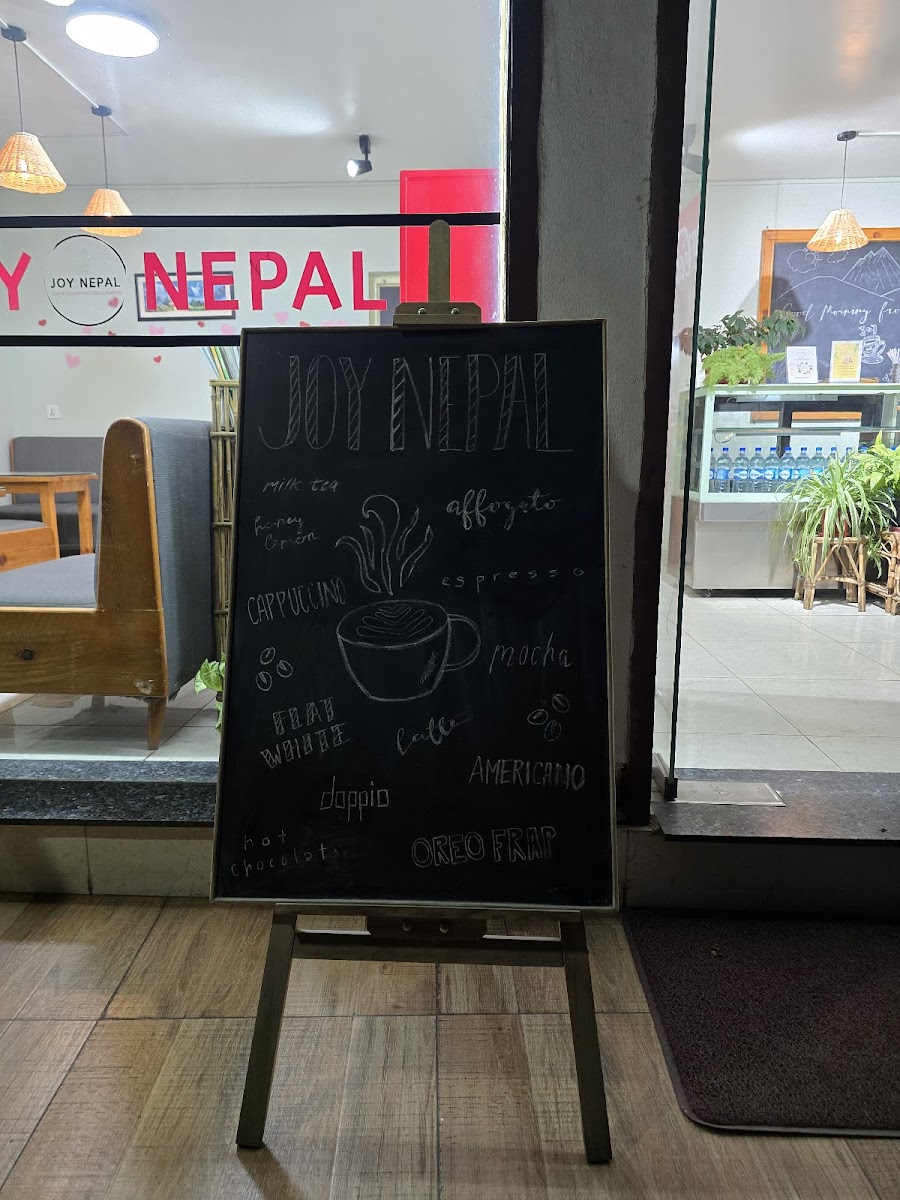 Y
JOY NEPAL
NEPAL
Good Morning from
JOY NEPAL
milk tea
affogato
honey
lemon
espresso
CAPPUCCINO
mocha
FLAT
WHITE
latte
AMERICANO
doppio
hot
chocolate
OREO FRAP